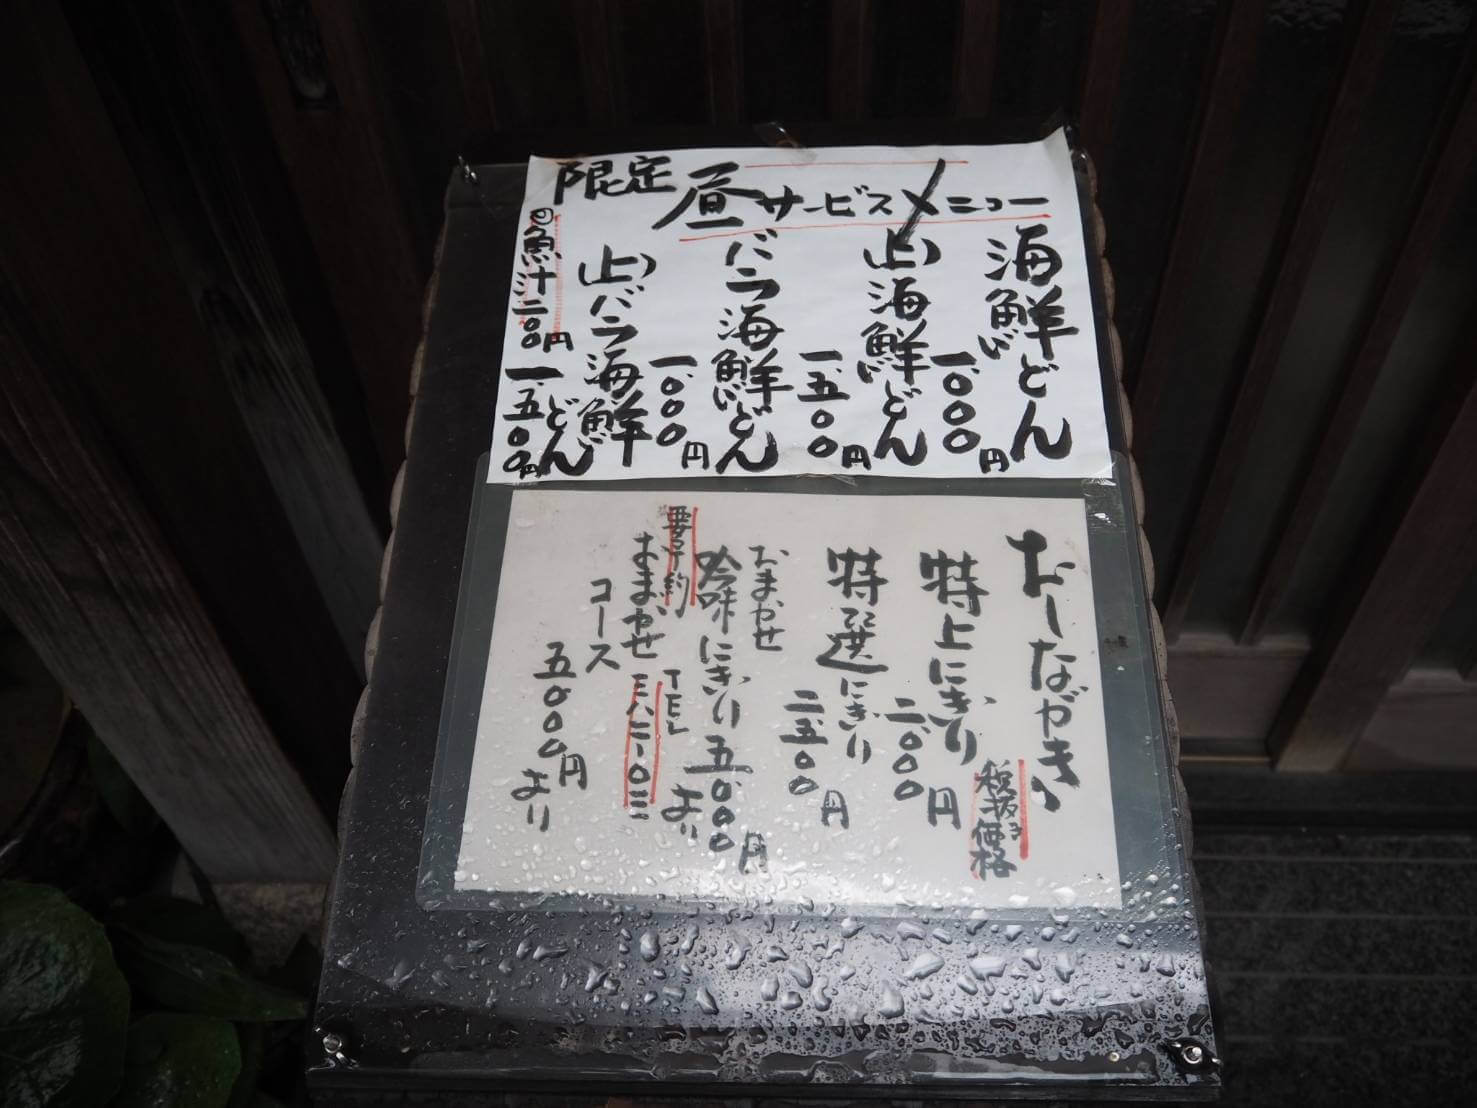 限定 昼サービスメニュー
海鮮どん
一、〇〇〇円
(上)海鮮どん
一、五〇〇円
バラ海鮮どん
一、〇〇〇円
(上)バラ海鮮
どん
一、五〇〇円
魚汁二〇〇円
おしながき
税抜き価格
特上にぎり
二、〇〇〇円
特選にぎり
二、五〇〇円
おまかせ
吟味にぎり五、〇〇〇円
より
要予約
TEL
おまかせ
コース
五、〇〇〇円
より